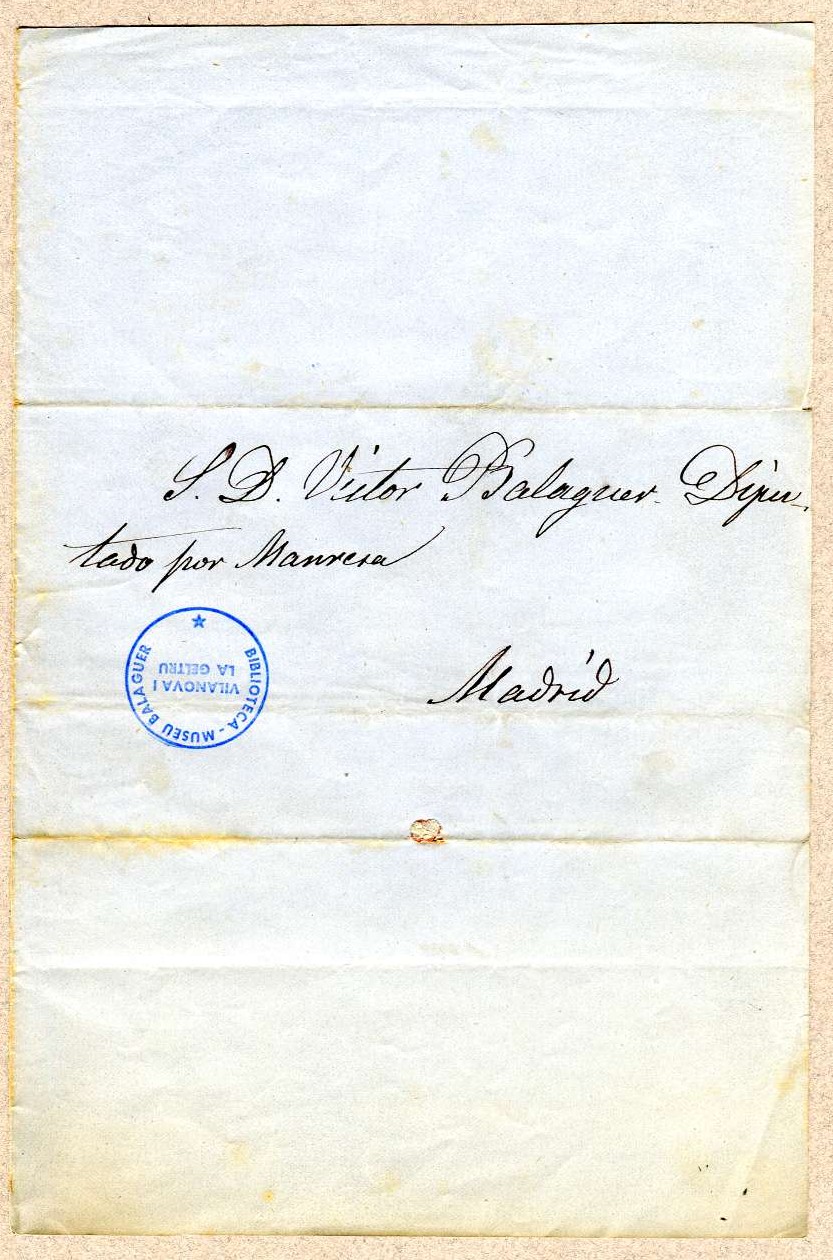 S. D. Victor Balaguer. Dipu-
tado por Manresa
Madrid
BIBLIOTECA - MUSEU BALAGUER
VILANOVA I
LA GELTRU